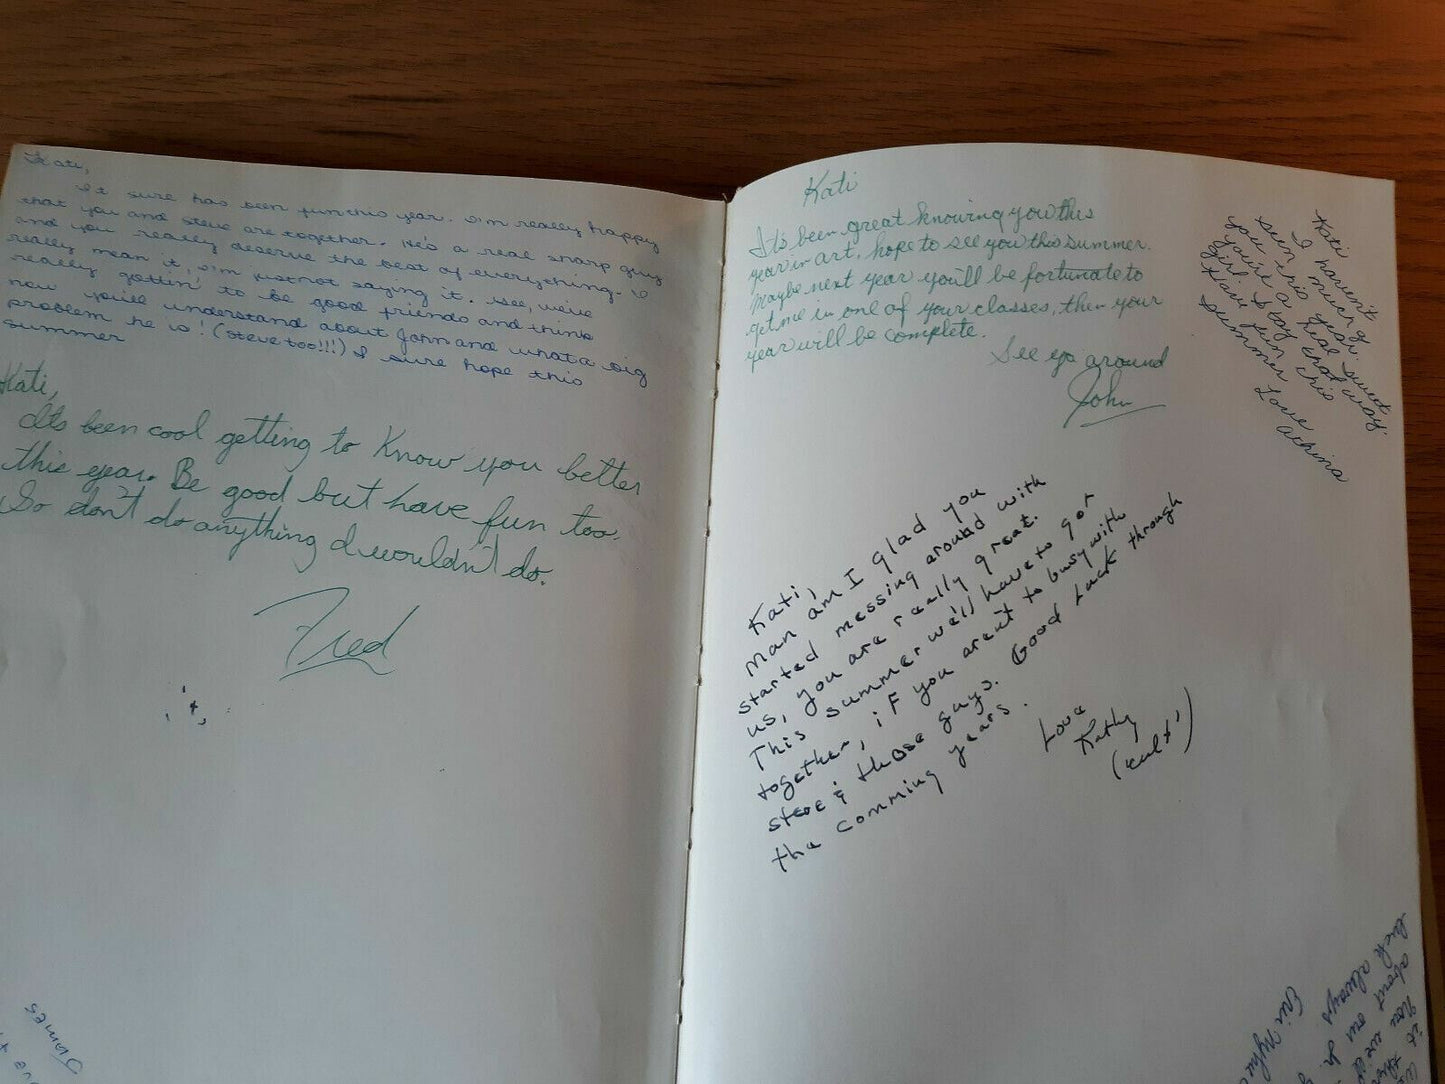 Kati,
It sure has been fun this year. I'm really happy
that you and Steve are together. He's a real sharp guy
and you really deserve the best of everything. I
really mean it, I'm just not saying it. See, we're
really gettin' to be good friends and I think
now you'll understand about John and what a big
problem he is! (Steve too!!!) I sure hope this
summer
Kati,
It's been cool getting to Know you better
this year. Be good but have fun too.
So don't do anything I wouldn't do.
Fred
James
Kati
It's been great knowing you this
year in art, hope to see you this summer.
Maybe next year you'll be fortunate to
get me in one of your classes, then your
year will be complete.
See ya around
John
Kati
I haven't
seen much of
you this year.
you're a real sweet
girl. I stay that way.
Have fun this
summer
Love
Kati,
Man am I glad you
started messing around with
us, you are really great.
This summer we'll have to get
together, if you aren't to busy with
steve & those guys. Good Luck through
the comming years.
Love
Kathy
luck always
about